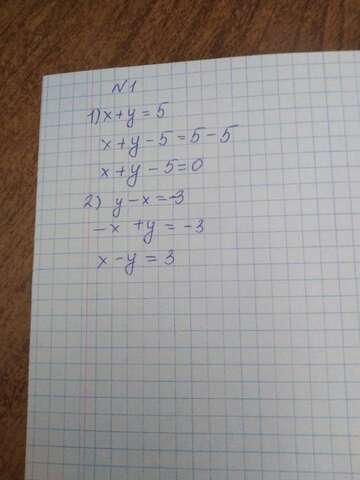 №1
1) x + y = 5
x + y - 5 = 5 - 5
x + y - 5 = 0
2) y - x = -3
-x + y = -3
x - y = 3